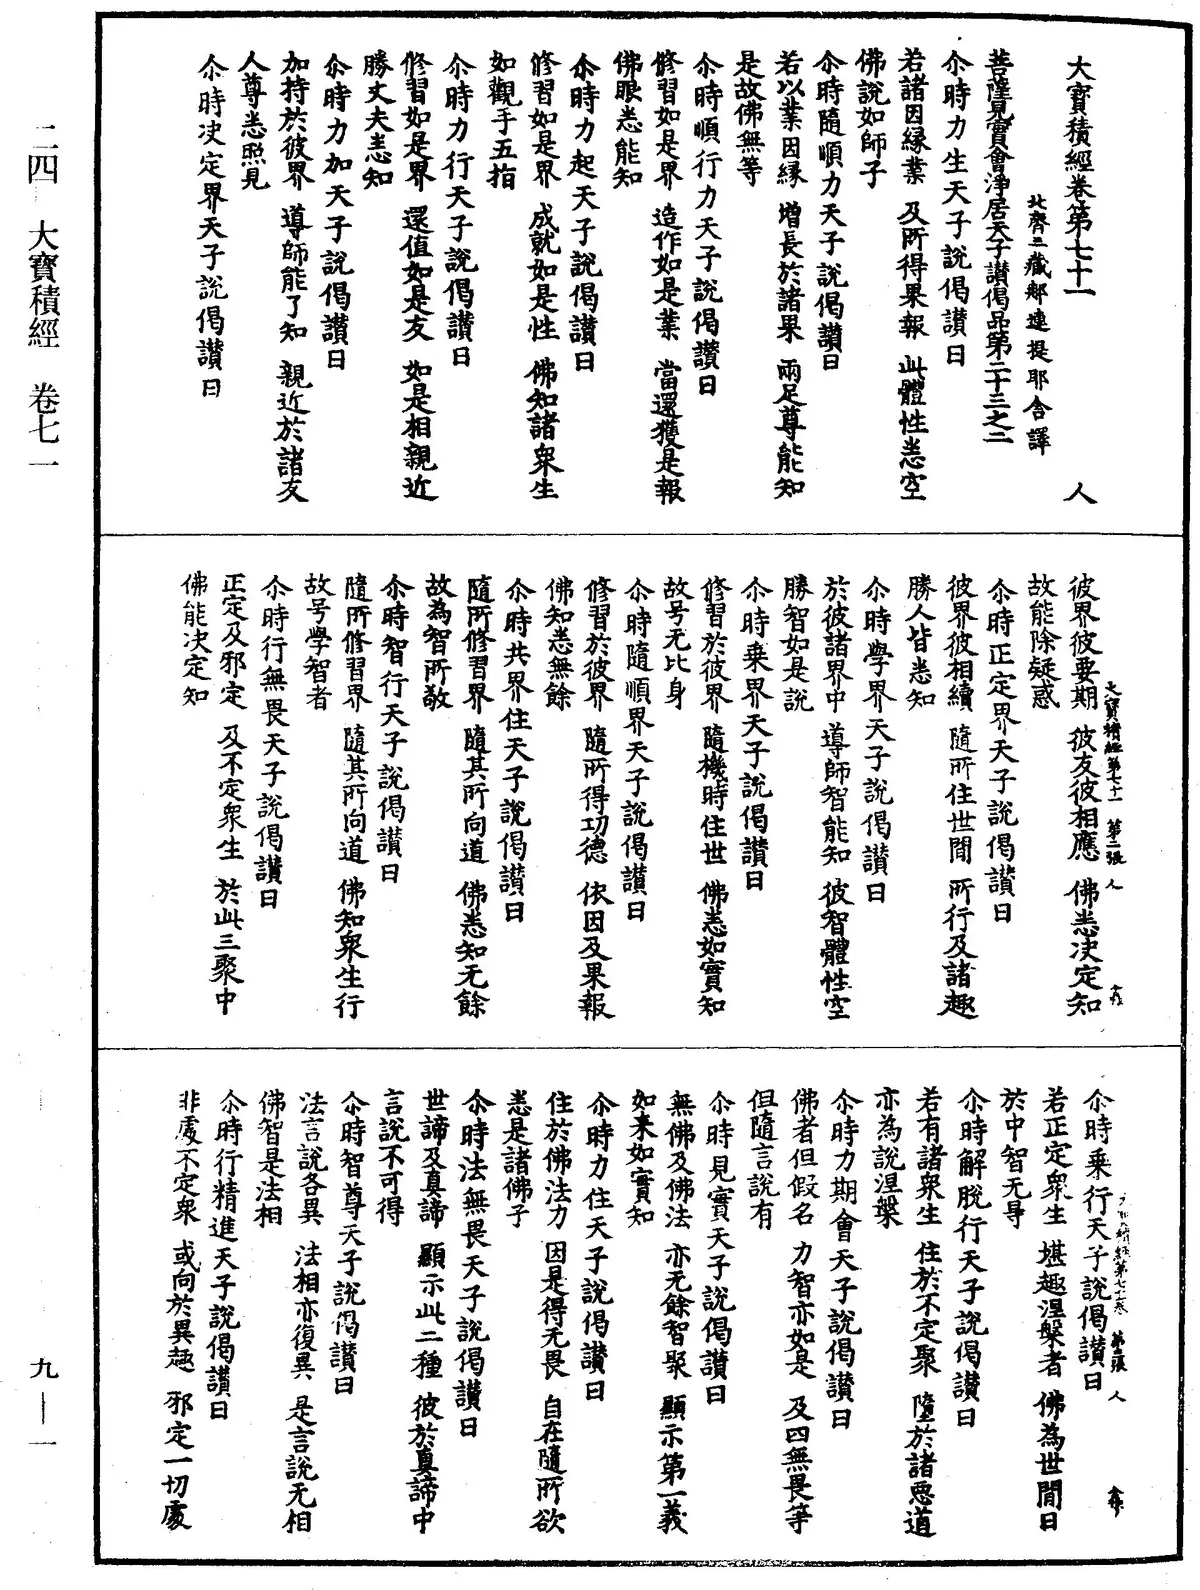 大寶積經卷第七十一　人
北齊三藏那連提耶舍譯
菩薩見實會淨居天子讚偈品第二十三之二
尒時力生天子說偈讚曰
若諸因緣業　及所得果報　此體性悉空
佛說如師子
尒時隨順力天子說偈讚曰
若以業因緣　增長於諸果　兩足尊能知
是故佛無等
尒時順行力天子說偈讚曰
修習如是界　造作如是業　當還獲是報
佛眼悉能知
尒時力起天子說偈讚曰
修習如是界　成就如是性　佛知諸衆生
如觀手五指
尒時力行天子說偈讚曰
修習如是界　還值如是友　如是相親近
勝丈夫悉知
尒時力加天子說偈讚曰
加持於彼界　導師能了知　親近於諸友
人尊悉照見
尒時決定界天子說偈讚曰
彼界彼要期　彼友彼相應　佛悉決定知
故能除疑惑
大寶積經第七十一　第二張　人
尒時正定界天子說偈讚曰
彼界彼相續　隨所住世間　所行及諸趣
勝人皆悉知
尒時學界天子說偈讚曰
於彼諸界中　導師智能知　彼智體性空
勝智如是說
尒時乘界天子說偈讚曰
修習於彼界　隨機時住世　佛悉如實知
故号无比身
尒時隨順界天子說偈讚曰
修習於彼界　隨所得功德　依因及果報
佛知悉無餘
尒時共界住天子說偈讚曰
隨所修習界　隨其所向道　佛悉知无餘
故為智所敬
尒時智行天子說偈讚曰
隨所修習界　隨其所向道　佛知衆生行
故号學智者
尒時行無畏天子說偈讚曰
正定及邪定　及不定衆生　於此三聚中
佛能決定知
尒時乘行天子說偈讚曰
若正定衆生　堪趣涅槃者　佛為世間日
於中智无㝵
尒時解脫行天子說偈讚曰
若有諸衆生　住於不定聚　墮於諸惡道
亦為說涅槃
尒時力期會天子說偈讚曰
佛者但假名　力智亦如是　及四無畏等
但隨言說有
尒時見實天子說偈讚曰
無佛及佛法　亦无餘智聚　顯示第一義
如來如實知
尒時力住天子說偈讚曰
住於佛法力　因是得无畏　自在隨所欲
悉是諸佛子
尒時法無畏天子說偈讚曰
世諦及真諦　顯示此二種　彼於真諦中
言說不可得
尒時智尊天子說偈讚曰
法言說各異　法相亦復異　是言說无相
佛智是法相
尒時行精進天子說偈讚曰
非處不定衆　或向於異趣　邪定一切處
二四　大寶積經　卷七一
九—一